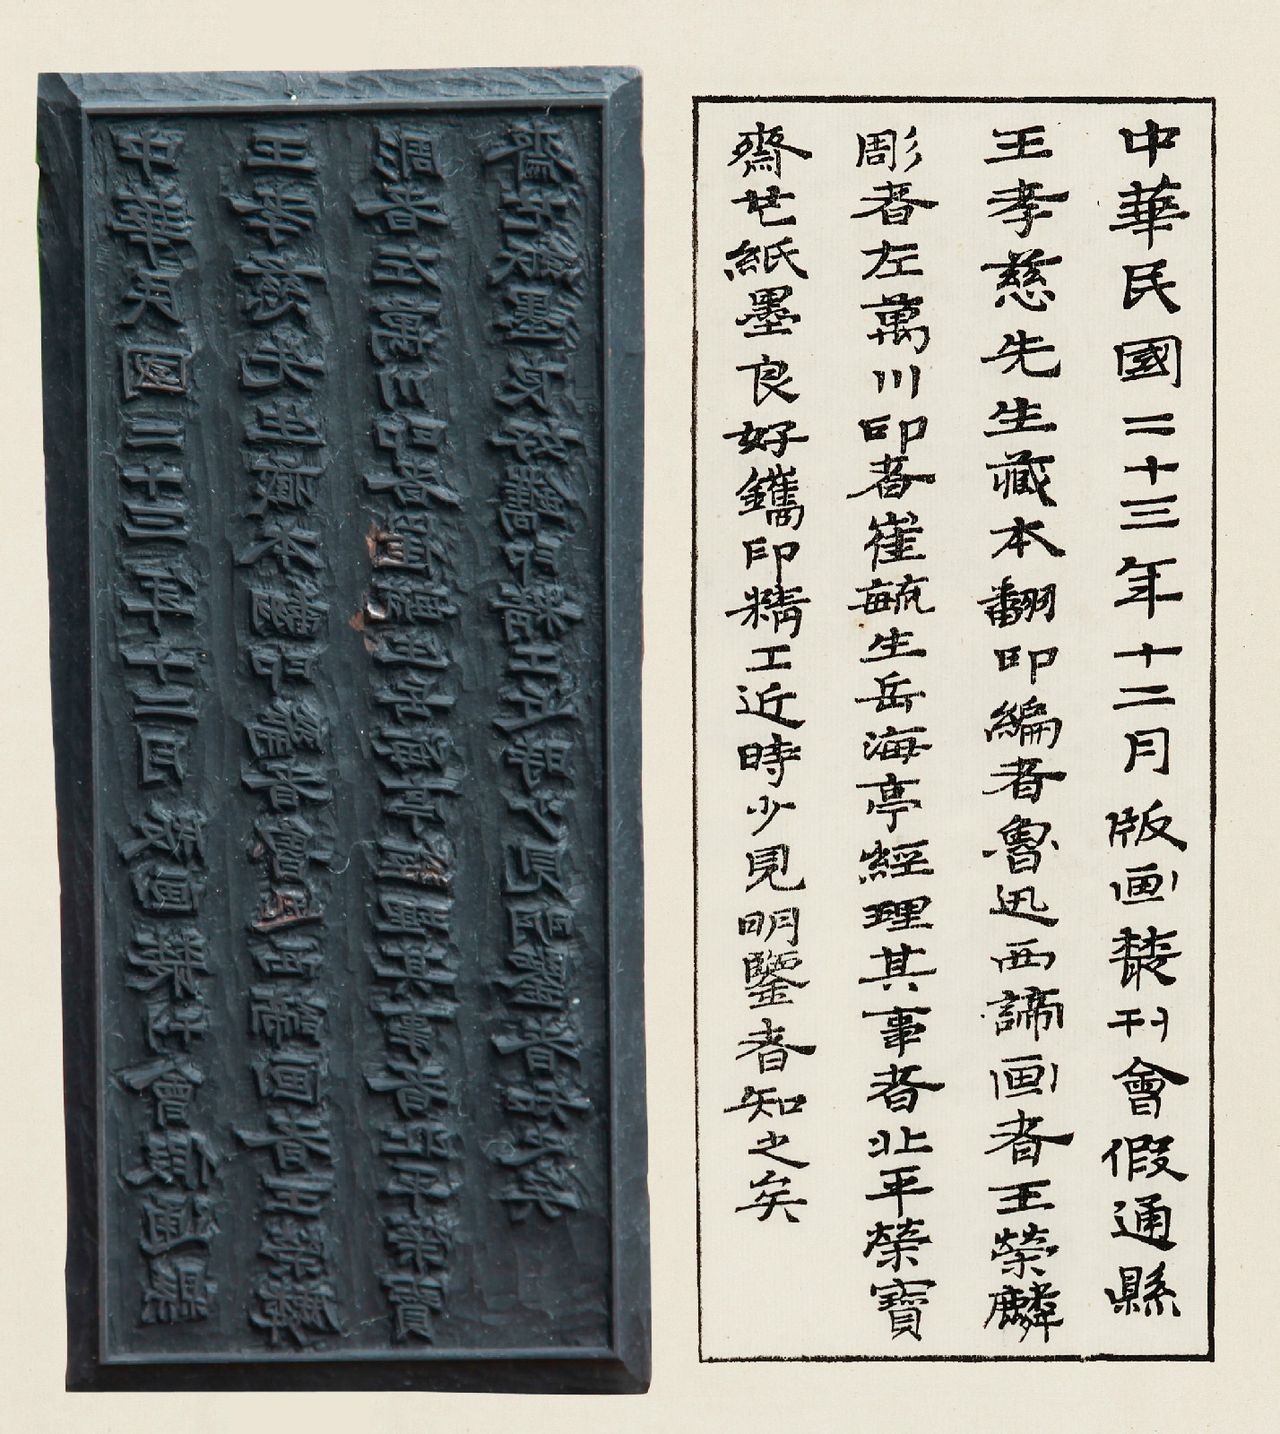 中華民國二十三年十二月版画叢刊會假通縣
王孝慈先生藏本翻印編者魯迅西諦画者王榮麟
彫者左萬川印者崔毓生岳海亭經理其事者北平榮寶
齋也紙墨良好鐫印精工近時少見明鑒者知之矣